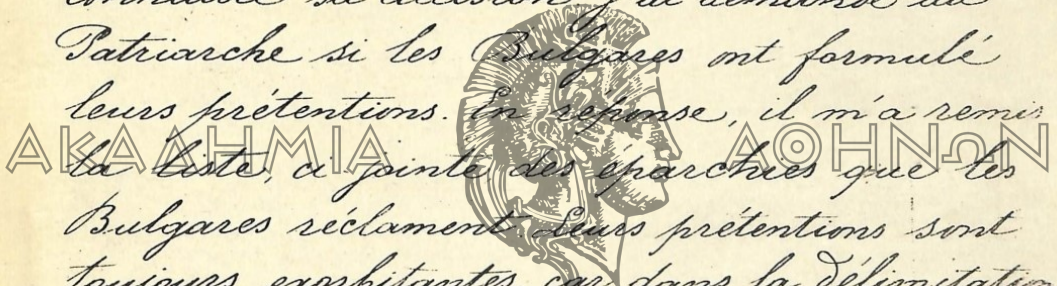 connaître sa décision j'ai demandé au
Patriarche si les Bulgares ont formulé
leurs prétentions. En réponse, il m'a remis
la liste, ci jointe des eparchies que les
Bulgares réclament Leurs prétentions sont
toujours exorbitantes car dans la délimitation
ΑΚΑΔΗΜΙΑ ΑΘΗΝΩΝ